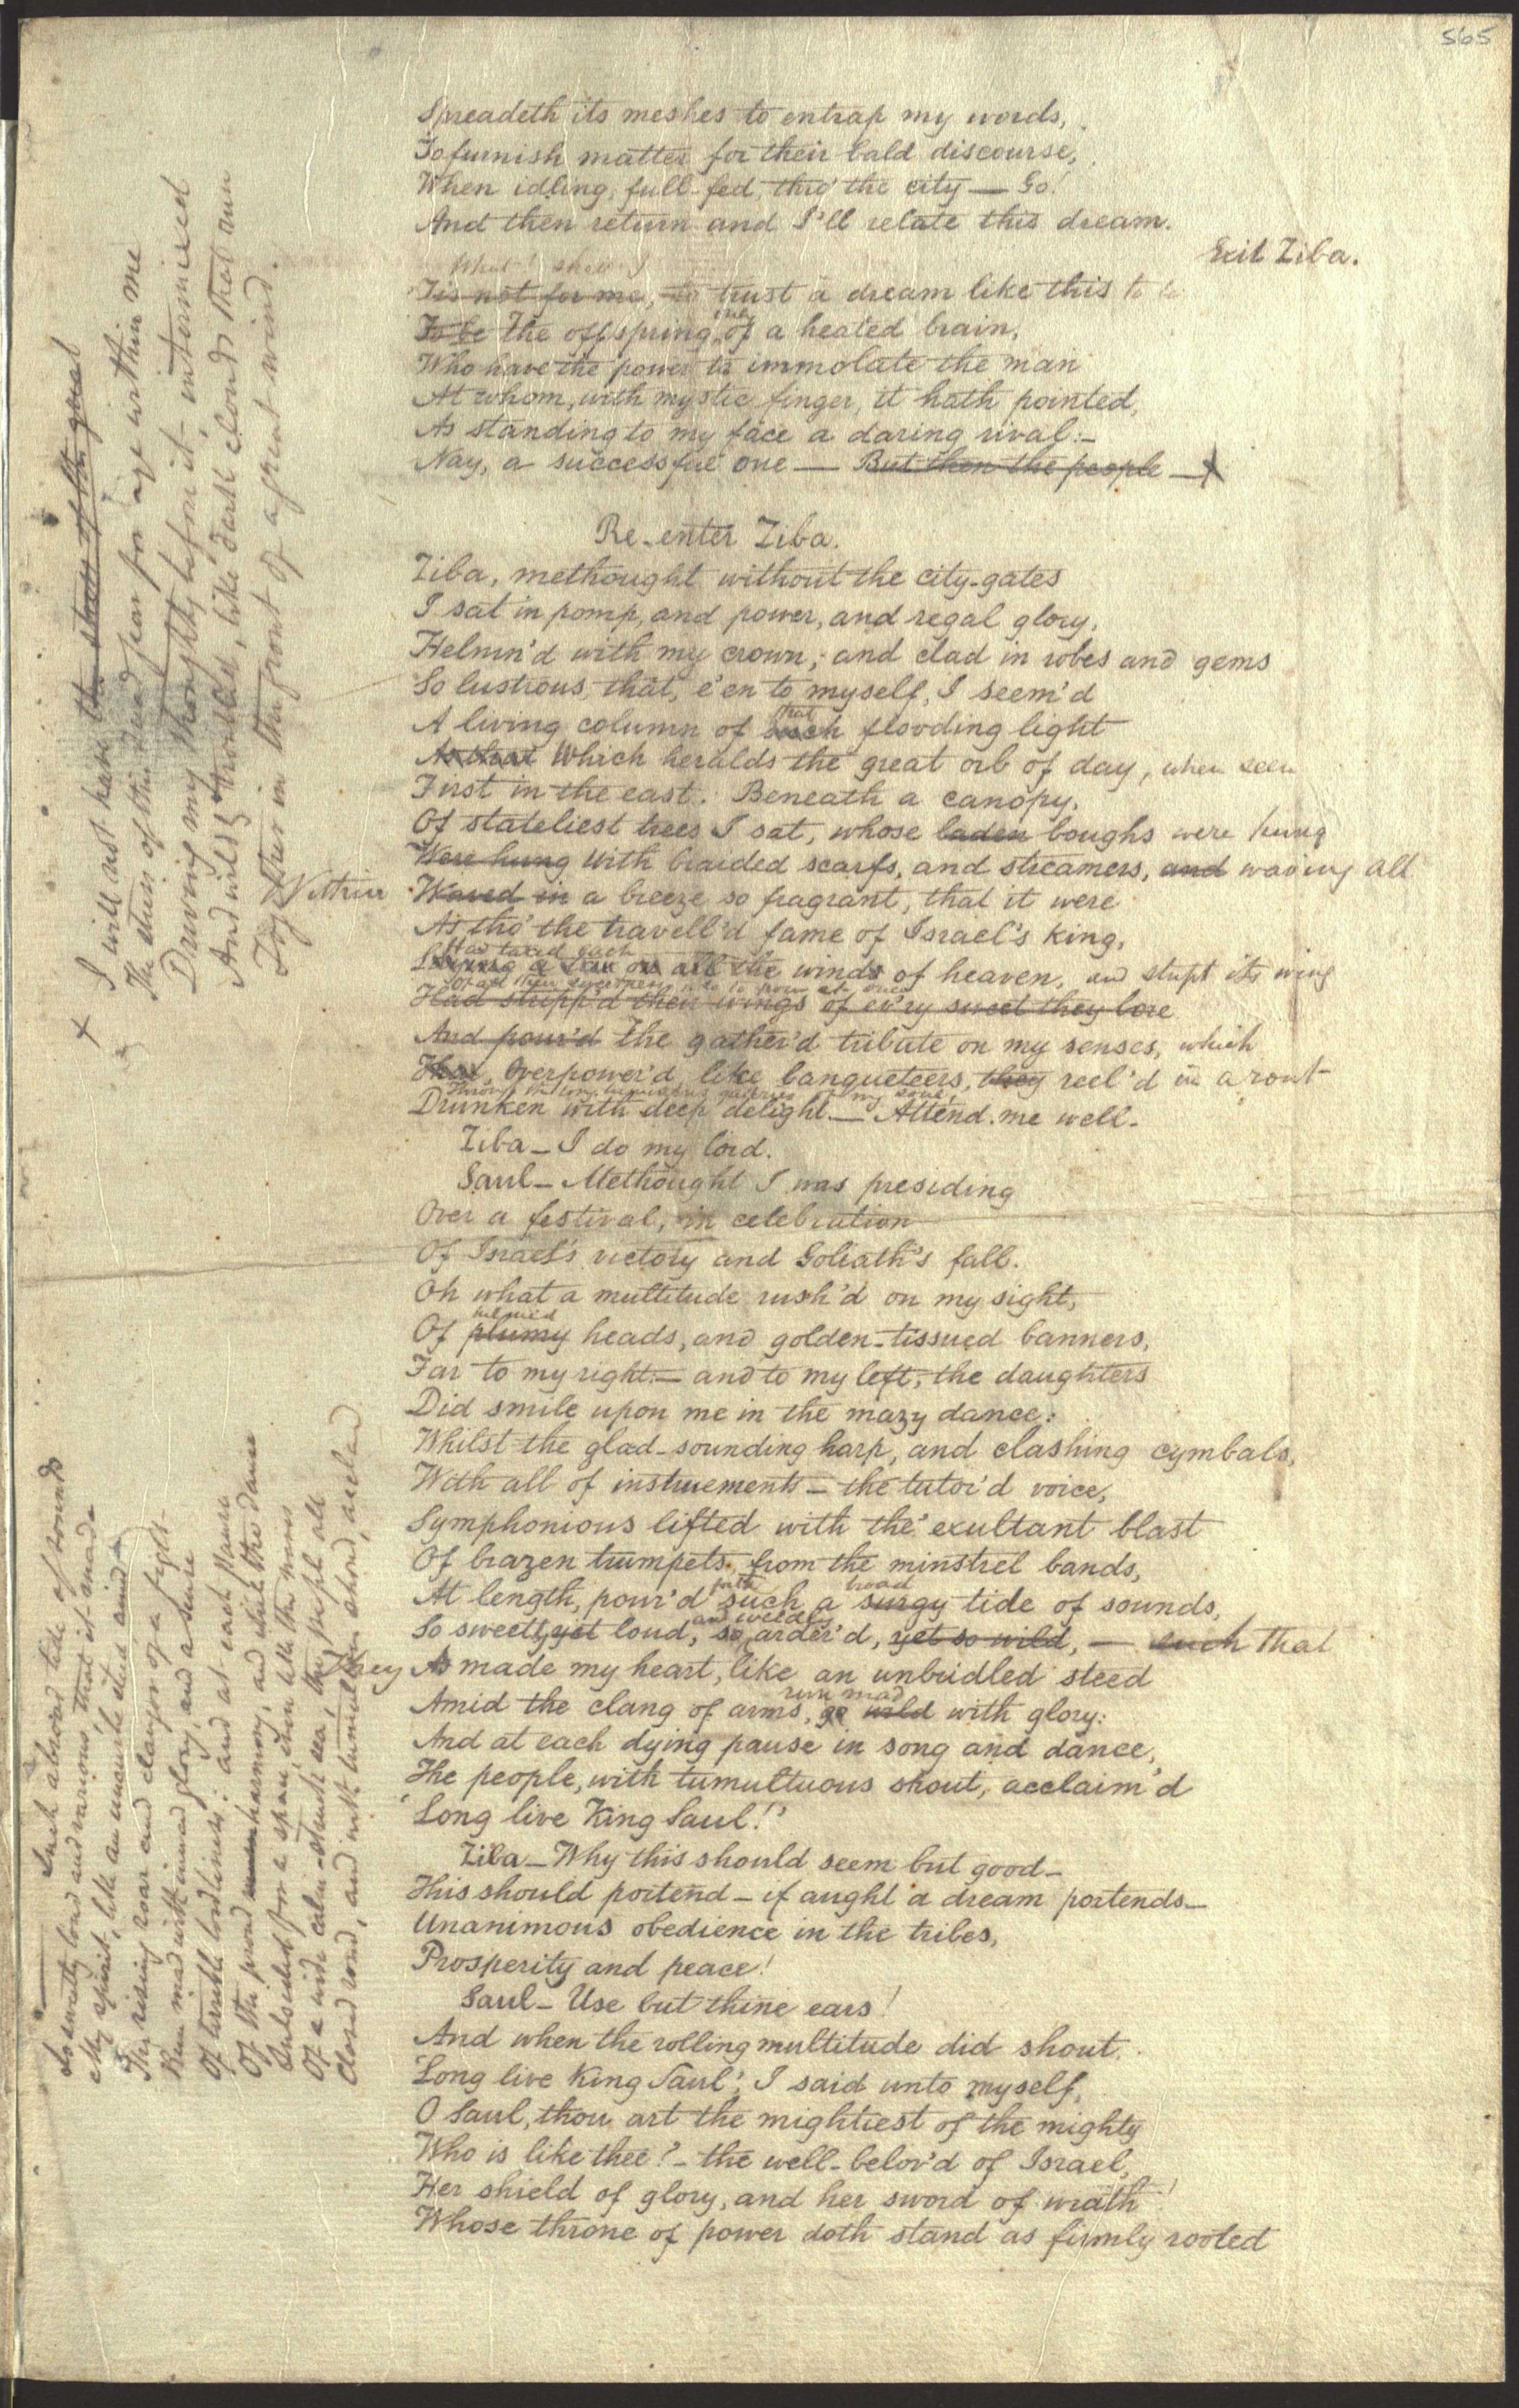 565
Spreadeth its meshes to entrap my words,
To furnish matter for their bald discourse,
When idling, full-fed, thro' the city — Go!
And then return and I'll relate this dream.
Exit Ziba.
What! shall I
Tis not for me, to trust a dream like this to be
To be The offspring only of a heated brain,
Who have the power to immolate the man
At whom, with mystic finger, it hath pointed,
As standing to my face a daring rival:—
Nay, a successful one — But then the people — X
Re-enter Ziba.
Ziba, methought without the city-gates
I sat in pomp, and power, and regal glory,
Helm'd with my crown, and clad in robes and gems
So lustrous, that, e'en to myself, I seem'd
that
A living column of such flooding light
As that Which heralds the great orb of day, when seen
First in the east. Beneath a canopy,
Of stateliest trees I sat, whose laden boughs were hung
Were hung With braided scarfs, and streamers, and waving all
Within Waved in a breeze so fragrant, that it were
As tho' the travell'd fame of Israel's king,
Had taxed each
Laying a tax on all the winds of heaven, and stript its wing
Of all their sweetness so to pour at once
Had stripp'd their wings of ev'ry sweet they bore
And pour'd The gather'd tribute on my senses, which
That, Overpower'd like banqueteers, they reel'd in a rout
Through the long galleries of my soul,
Drunken with deep delight.— Attend me well.
Ziba — I do my lord.
Saul — Methought I was presiding
Over a festival, in celebration
Of Israel's victory and Goliath's fall.
Oh what a multitude rush'd on my sight,
helmed
Of plumy heads, and golden-tissued banners,
Far to my right:— and to my left, the daughters
Did smile upon me in the mazy dance:
Whilst the glad-sounding harp, and clashing cymbals,
With all of instruments — the tutor'd voice,
Symphonious lifted with the exultant blast
Of brazen trumpets, from the minstrel bands,
forth broad
At length, pour'd such a surgy tide of sounds,
and weirdly
So sweetly, yet loud, so order'd, yet so wild, — such that
they As made my heart, like an unbridled steed
run mad
Amid the clang of arms, go wild with glory:
And at each dying pause in song and dance,
The people, with tumultuous shout, acclaim'd
'Long live King Saul!'
Ziba — Why this should seem but good —
This should portend — if aught a dream portends —
Unanimous obedience in the tribes,
Prosperity and peace!
Saul — Use but thine ears!
And when the rolling multitude did shout,
'Long live King Saul', I said unto myself,
O Saul, thou art the mightiest of the mighty
Who is like thee? — the well-belov'd of Israel,
Her shield of glory, and her sword of wrath!
Whose throne of power doth stand as firmly rooted
X I will not have the of the great
The stress of this dread fear for aye within me
Driving my thoughts before it, intermixed
And wildly troubled, like dark clouds that run
Together in the front of a great wind.
Such a broad tide of sounds
So sweetly loud and various, that it made
My spirit, like an uncurb'd steed amid
The rising roar and clangor of a fight
Run mad with inward glory, and a sense
Of terrible loudliness: and at each pause
Of the proud harmony, and while the dance
Subsided for a span, even like the waves
Of a wide calm-struck sea, the people all
Closed round, and with tumultuous shout, acclaimed